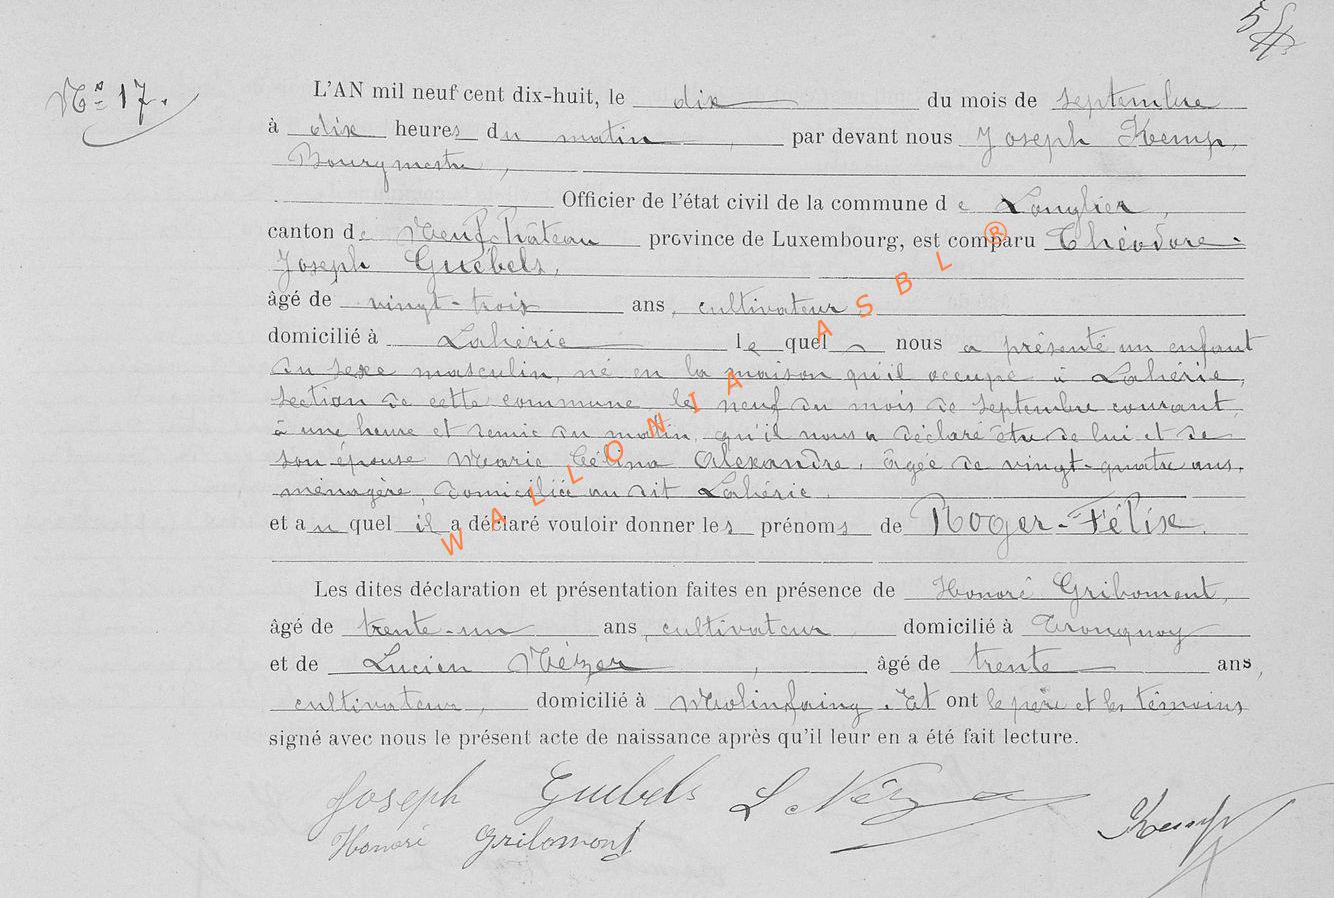 Nº 17.
L'AN mil neuf cent dix-huit, le dix du mois de septembre
à dix heures du matin, par devant nous Joseph Kemp,
Bourgmestre,
Officier de l'état civil de la commune de Longlier,
canton de Neufchâteau province de Luxembourg, est comparu Théodore-
Joseph Guébels,
âgé de vingt-trois ans, cultivateur
domicilié à Lahérie lequel nous a présenté un enfant
du sexe masculin, né en la maison qu'il occupe à Lahérie,
section de cette commune, le neuf du mois de septembre courant,
à une heure et demie du matin, qu'il nous a déclaré être de lui et de
son épouse Marie Célina Alexandre, âgée de vingt-quatre ans,
ménagère, domiciliée au dit Lahérie.
et auquel il a déclaré vouloir donner les prénoms de Roger-Félix.
Les dites déclaration et présentation faites en présence de Honoré Gribomont,
âgé de trente-un ans, cultivateur domicilié à Tronquoy
et de Lucien Nézer, âgé de trente ans,
cultivateur, domicilié à Molinfaing. Et ont le père et les témoins
signé avec nous le présent acte de naissance après qu'il leur en a été fait lecture.
Joseph Guebels L Nézer Kemp
Honoré Gribomont
WALLONIA ASBL ®